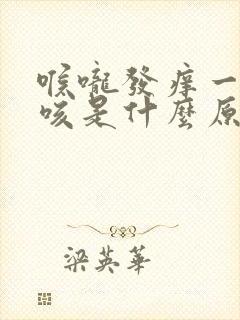 喉嚨發癢一
咳是什麼原
梁英華